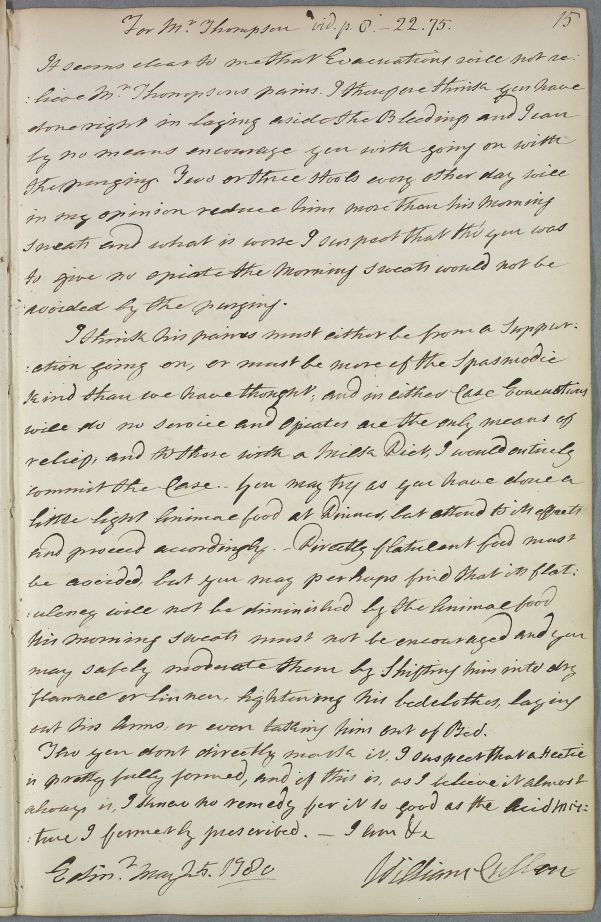 For Mr. Thompson vid. p. 8. - 22. 75.
15
It seems clear to me that Evacuations will not re:
:lieve Mr Thompsons pains. I therefore think you have
done right in laying aside the Bleeding, and I can
by no means encourage you with going on with
the purging. Two or three stools every other day will
in my opinion reduce him more than his morning
sweats and what is worse I suspect that tho' you was
to give no opiate the morning sweats would not be
avoided by the purging.
I think his pains must either be from a Suppur:
:ation going on, or must be more of the Spasmodic
kind than we have thought, and in either Case Evacuations
will do no service and Opiates are the only means of
relief, and to those with a Milk Diet, I would entirely
commit the Case. - You may try as you have done a
little light Animal food at Dinner, but attend to its effects
and proceed accordingly. - Directly flatulent food must
be avoided, but you may perhaps find that its flat:
:ulency will not be diminished by the Animal food
His morning sweats must not be encouraged and you
may safely moderate them by Shifting him into dry
flannel or linnen, lightening his bedclothes, laying
out his Arms, or even taking him out of Bed.
Tho you dont directly mark it, I suspect that a Hectic
is pretty fully formed, and if this is, as I believe it almost
always is, I know no remedy for it so good as the Acid mix:
:ture I formerly prescribed. - I am &c
Edinr. May 25. 1780
William Cullen